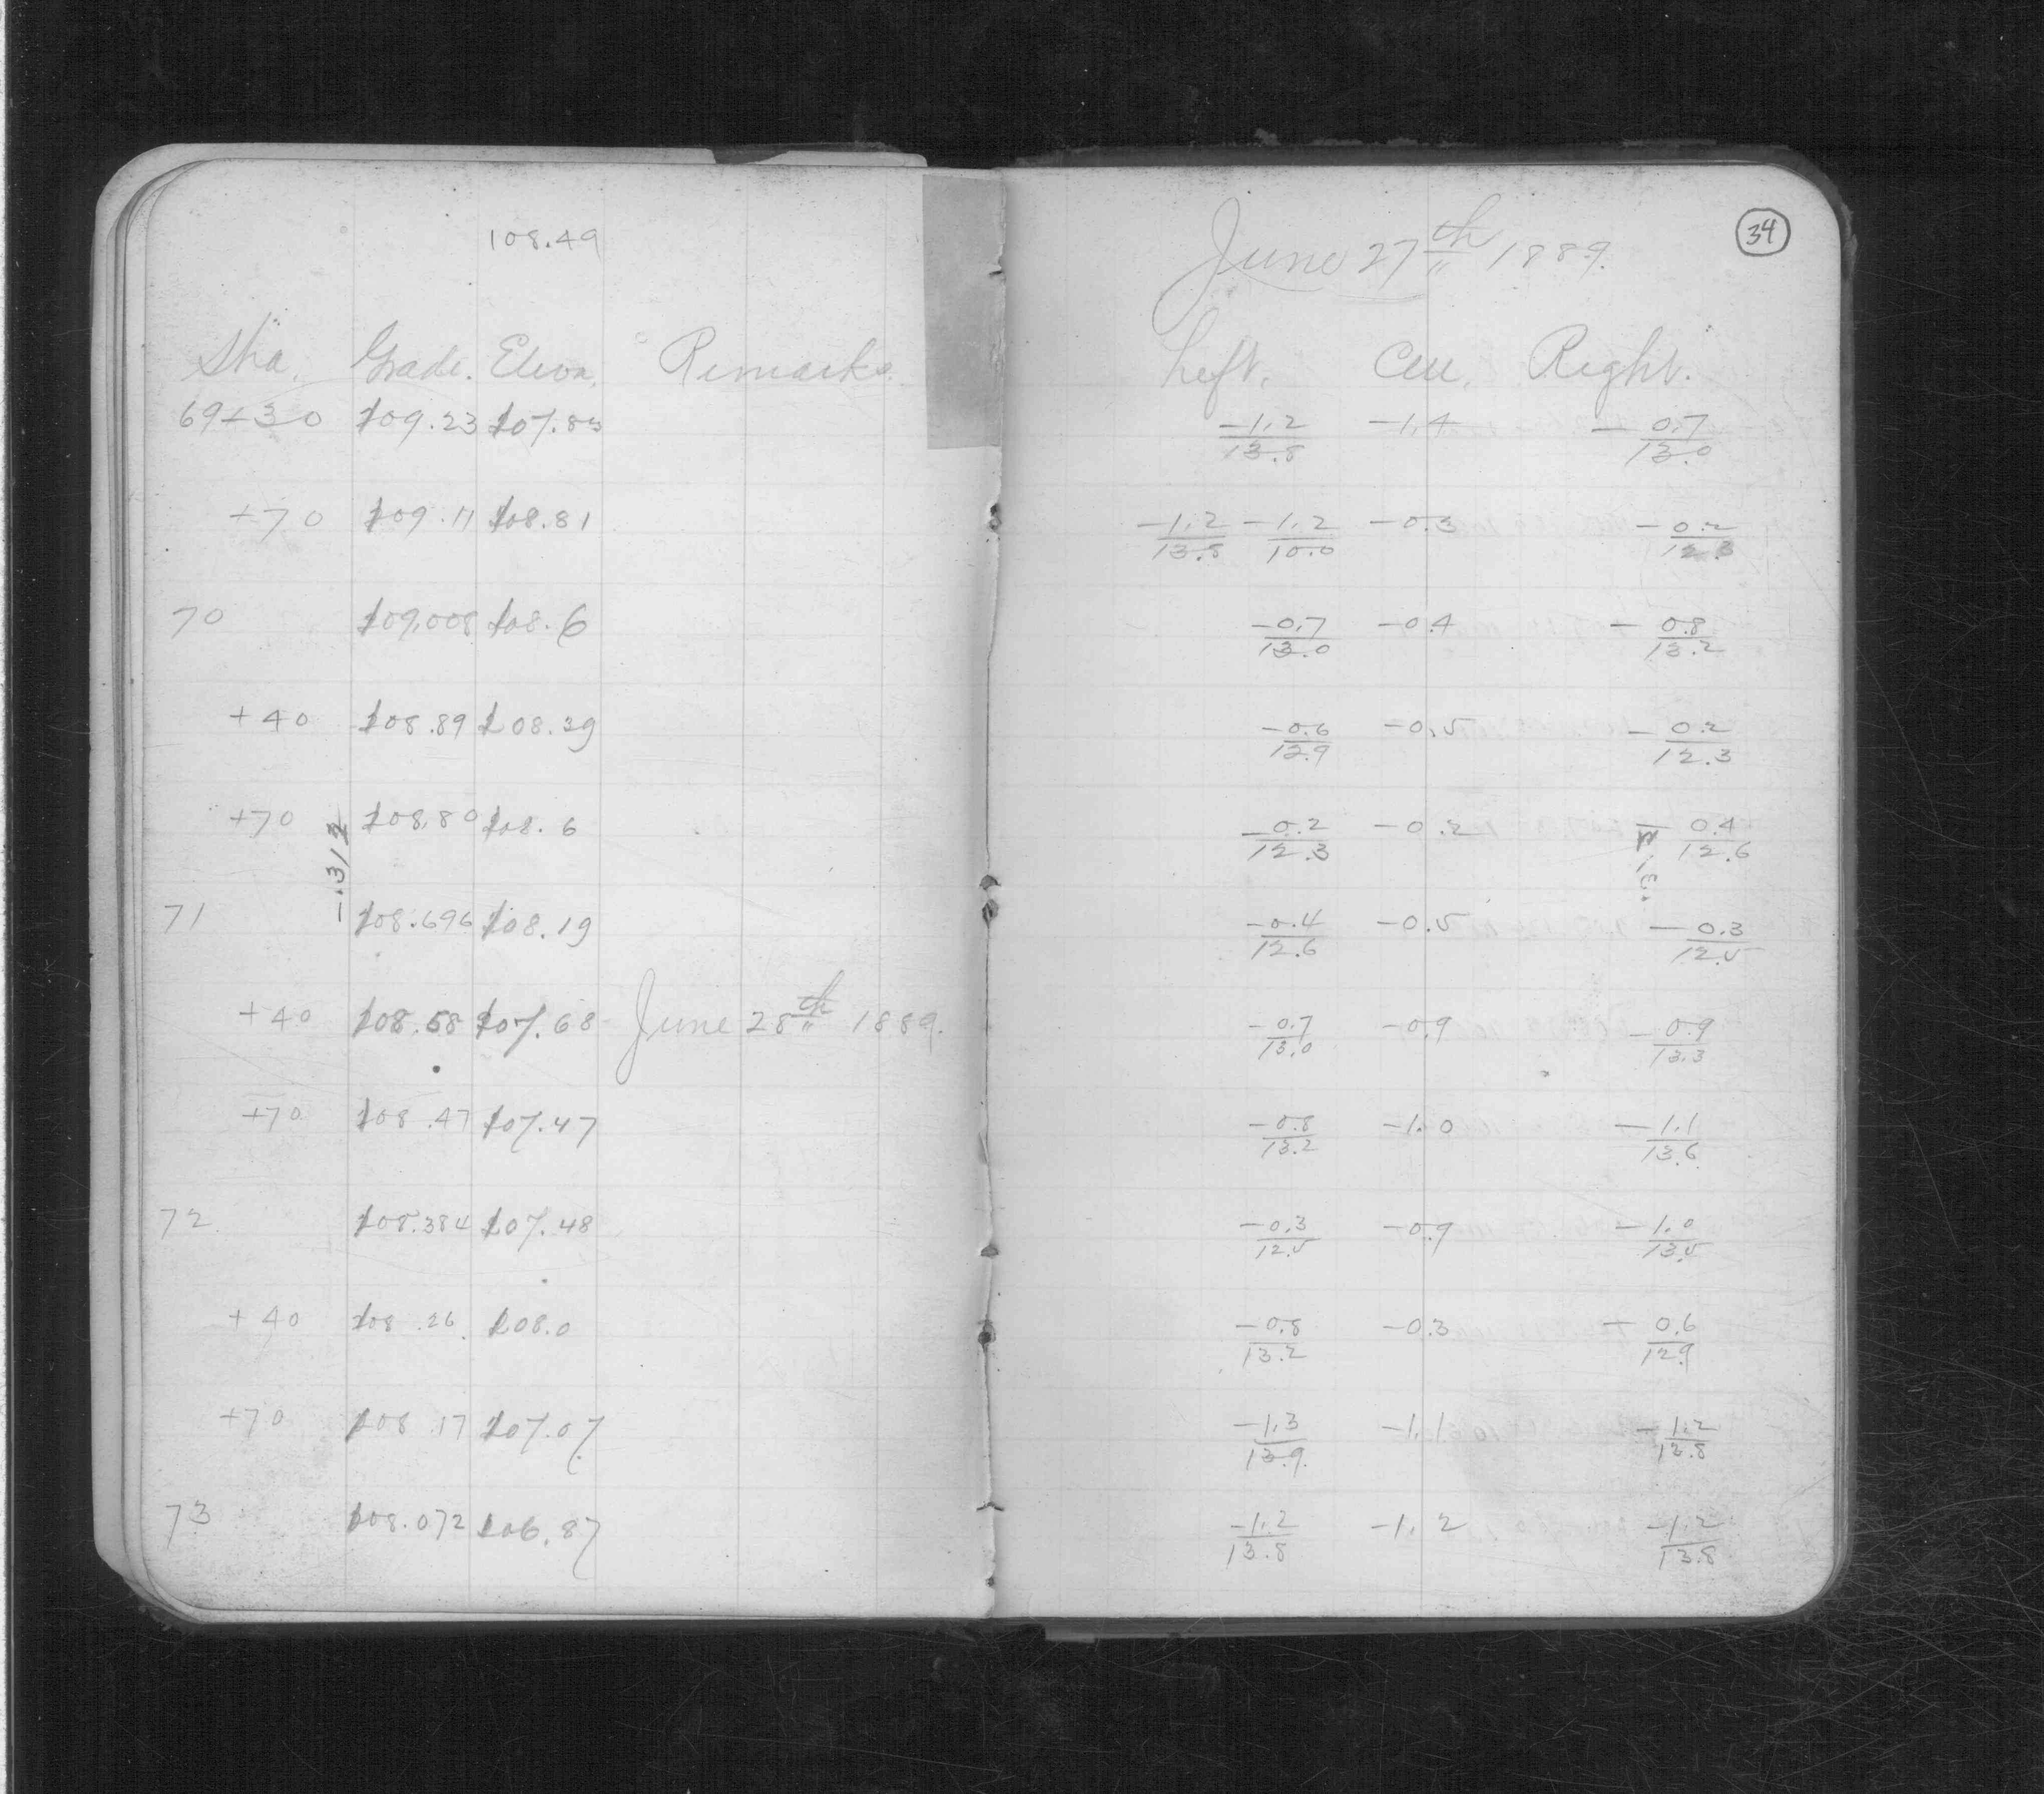 108.49
Sta. Grade. Eleva. Remarks.
69+30 109.23 107.83
+70 109.11 108.81
70 109.008 108.6
+40 108.89 108.39
+70 108.80 108.6
-.312
71 108.696 108.19
+40 108.58 107.68 June 28th 1889.
+70 108.47 107.47
72 108.384 107.48
+40 108.26 108.0
+70 108.17 107.07
73 108.072 106.87
34
June 27th 1889.
Left. Cen. Right.
-1.2 -1.4 -0.7
13.8 13.0
-1.2 -1.2 -0.3 -0.2
13.8 10.0 12.3
-0.7 -0.4 -0.8
13.0 13.2
-0.6 -0.5 -0.2
12.9 12.3
-0.2 -0.2 -0.4
12.3 12.6
-0.4 -0.5 -0.3
12.6 12.5
-0.7 -0.9 -0.9
13.0 13.3
-0.8 -1.0 -1.1
13.2 13.6
-0.3 -0.9 -1.0
12.5 13.5
-0.8 -0.3 -0.6
13.2 12.9
-1.3 -1.1 -1.2
13.9 13.8
-1.2 -1.2 -1.2
13.8 13.8